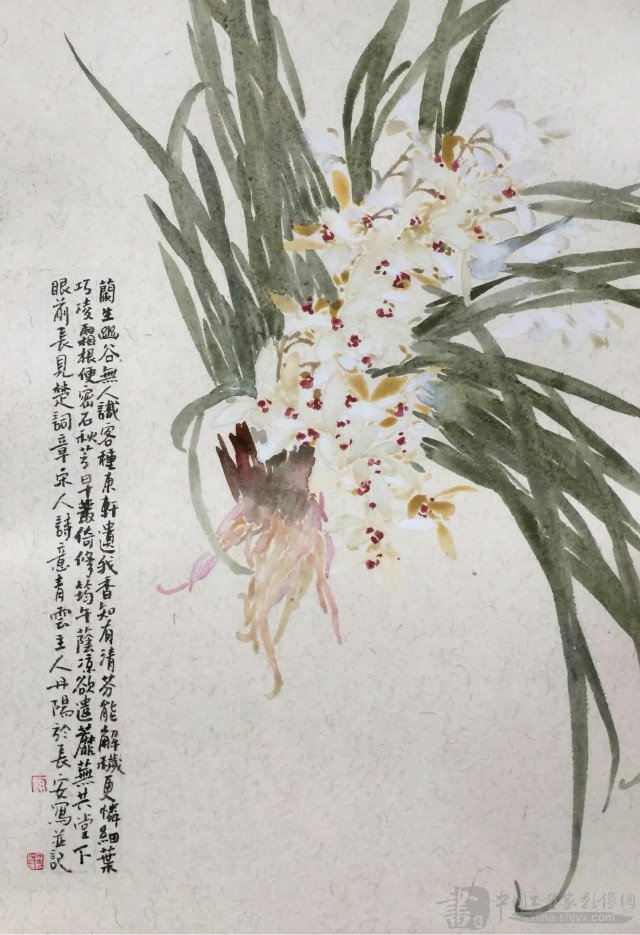 蘭生幽谷無人識客種東軒遺我香知有清芬能解穢更憐細葉
巧凌霜根便密石秋芳早叢倚修筠午蔭凉欲遣蘼蕪共堂下
眼前長見楚詞章宋人詩意青雲主人丹陽於長安寫並記
中国书画家影像網
china-shjyx.com